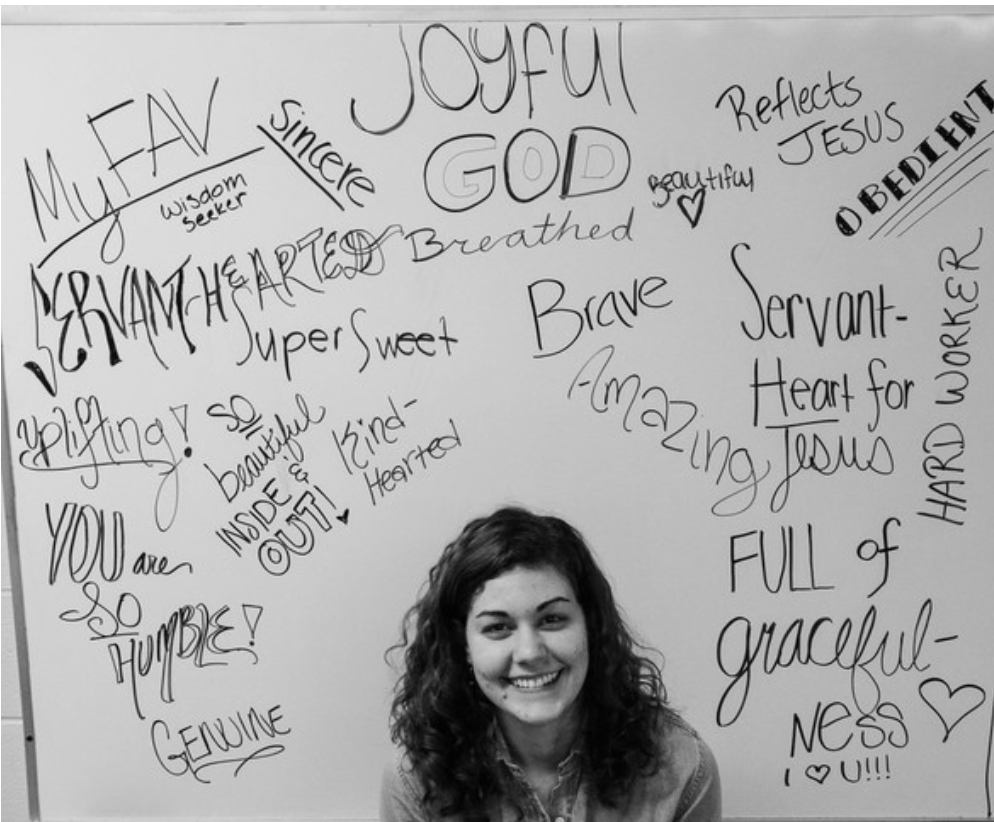 Joyful
GOD
Breathed
My FAV
wisdom
seeker
Sincere
Beautiful
Reflects
JESUS
OBEDIENT
SERVANT-HEARTED
Super Sweet
Brave
Amazing
Servant-
Heart for
Jesus
HARD WORKER
Uplifting!
SO
beautiful
INSIDE &
OUT!
Kind-
Hearted
YOU are
SO
HUMBLE!
GENUINE
FULL of
graceful-
NESS
I ♡ U!!!